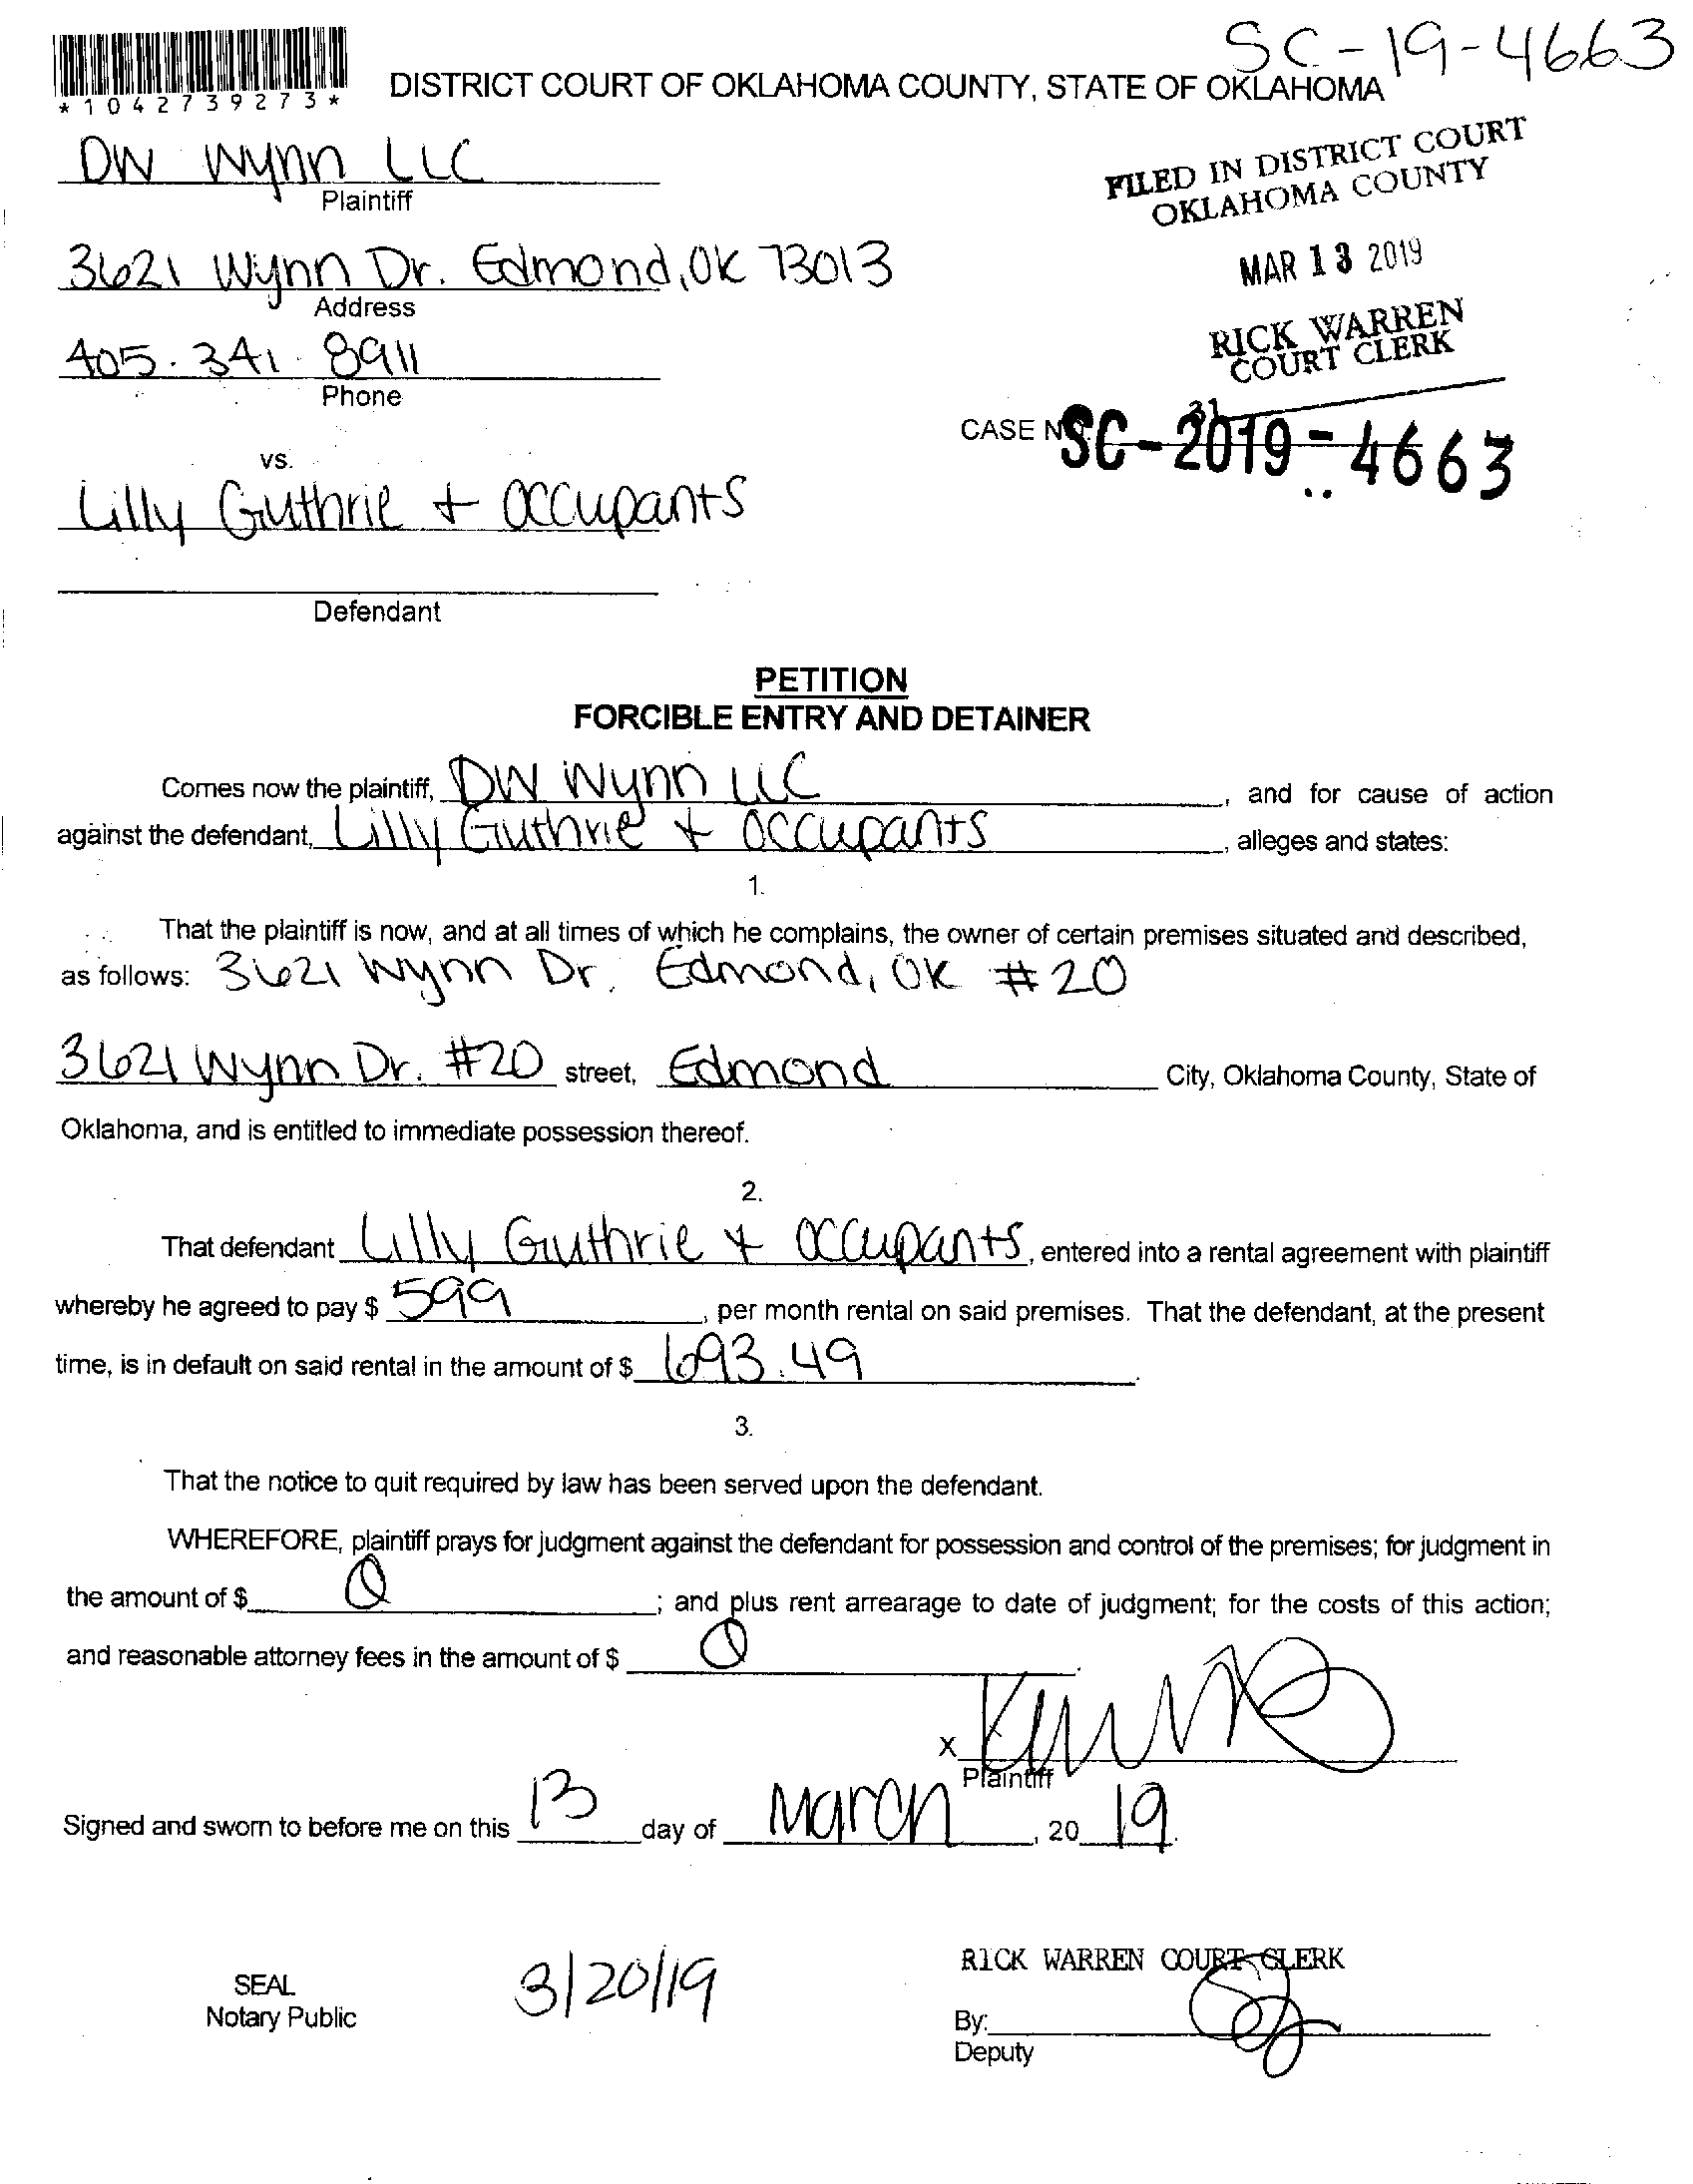 SC-19-4663
*1042739273*
DISTRICT COURT OF OKLAHOMA COUNTY, STATE OF OKLAHOMA
DW Wynn LLC
Plaintiff
FILED IN DISTRICT COURT
OKLAHOMA COUNTY
3621 Wynn Dr. Edmond, OK 73013
Address
MAR 13 2019
405.341.8911
Phone
RICK WARREN
COURT CLERK
31
CASE NO. SC-2019-4663
vs.
Lilly Guthrie + Occupants
Defendant
PETITION
FORCIBLE ENTRY AND DETAINER
Comes now the plaintiff, DW Wynn LLC, and for cause of action
against the defendant, Lilly Guthrie + Occupants, alleges and states:
1.
That the plaintiff is now, and at all times of which he complains, the owner of certain premises situated and described,
as follows: 3621 Wynn Dr. Edmond, OK #20
3621 Wynn Dr. #20 street, Edmond City, Oklahoma County, State of
Oklahoma, and is entitled to immediate possession thereof.
2.
That defendant Lilly Guthrie + Occupants, entered into a rental agreement with plaintiff
whereby he agreed to pay $ 599, per month rental on said premises. That the defendant, at the present
time, is in default on said rental in the amount of $ 693.49.
3.
That the notice to quit required by law has been served upon the defendant.
WHEREFORE, plaintiff prays for judgment against the defendant for possession and control of the premises; for judgment in
the amount of $ 0; and plus rent arrearage to date of judgment; for the costs of this action;
and reasonable attorney fees in the amount of $ 0.
X
Plaintiff
Signed and sworn to before me on this 13 day of March, 20 19.
SEAL
Notary Public
3/20/19
RICK WARREN COURT CLERK
By:
Deputy